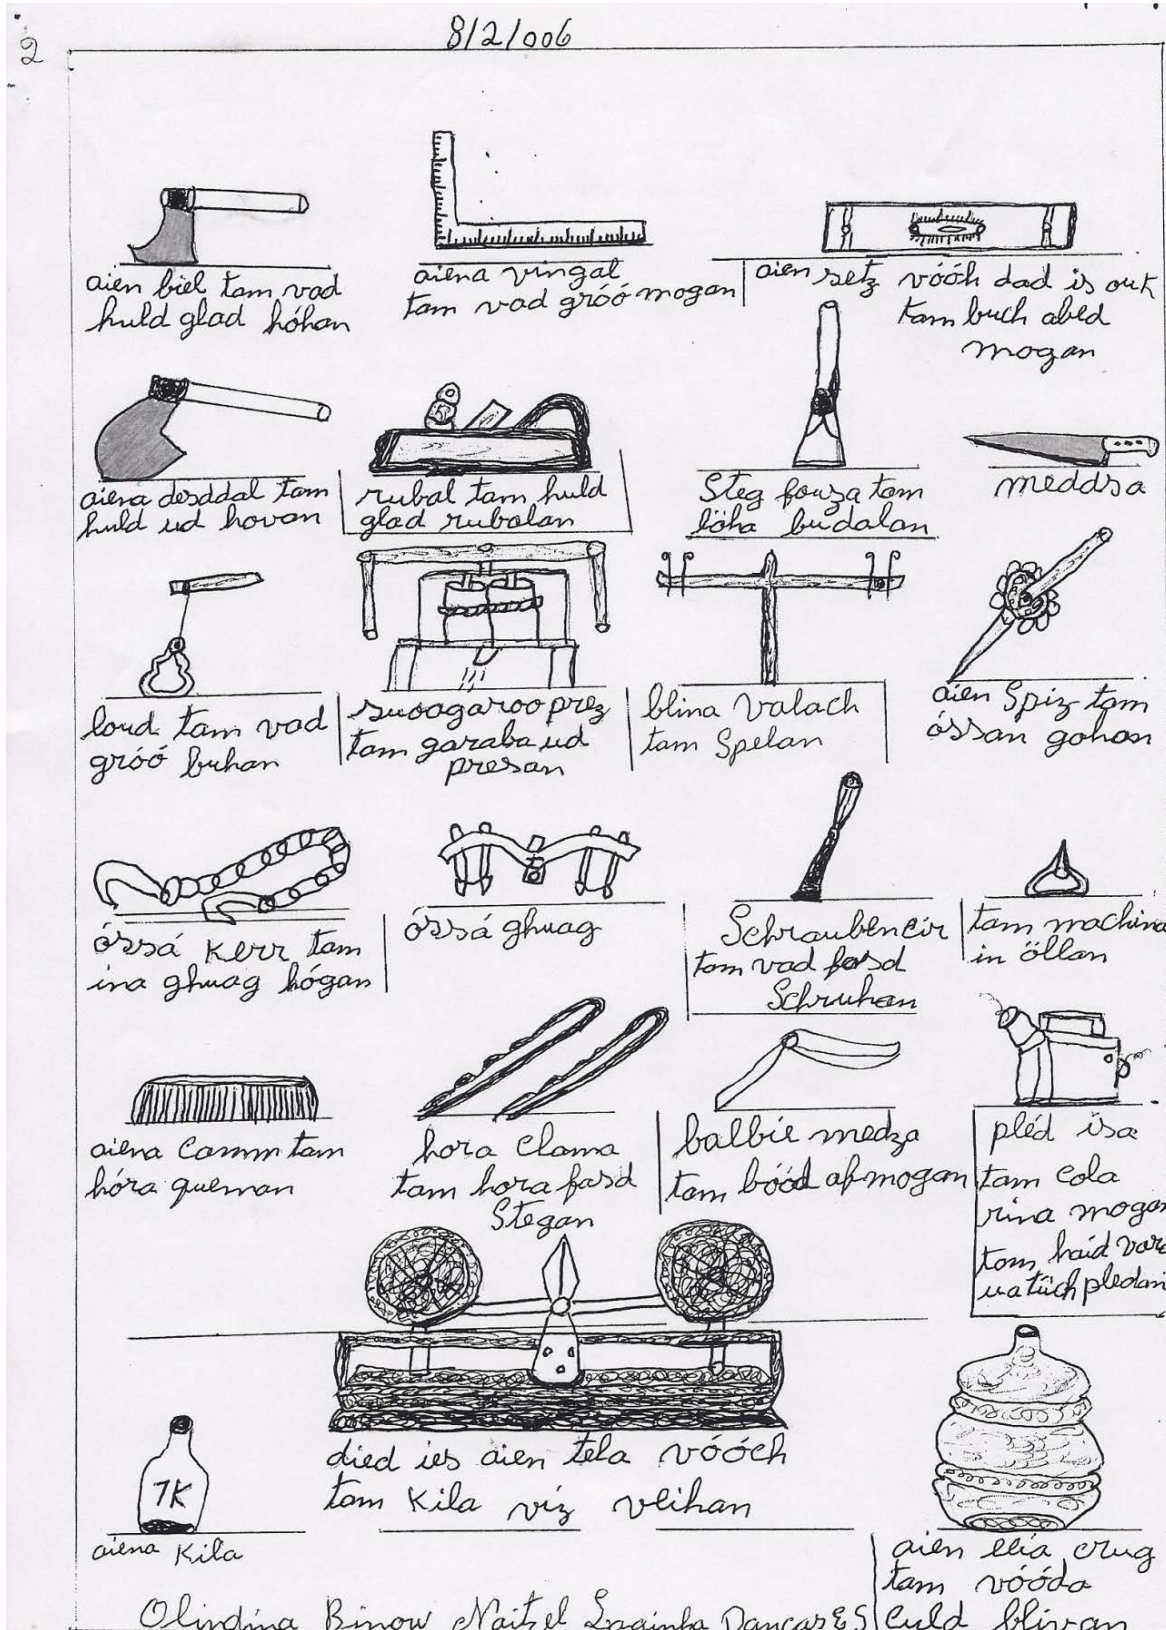 2
8/2/006
aien biel tam vad
huld glad hóhan
aiena vingal
tam vad gróó mogan
aien setz vóóh dad is ouk
tam buch abed
mogan
aiena desddal tam
huld ud hovan
rubal tam huld
glad rubalan
Steg fouza tam
löha budalan
meddsa
loud tam vad
gróó buhan
suoagaroo prez
tam garaba ud
presan
blina valach
tam Spelan
aien Spiz tam
óssan gohan
óssá Kerr tam
ina ghuag hógan
óssá ghuag
Schraubeneir
tam vad fasd
Schruhan
tam machina
in öllan
aiena Camm tam
hóra queman
hora Clama
tam hora fasd
Stegan
balbie medza
tam bóód af mogan
pléd isa
tam cola
rina mogan
tom haid vara
ua tüch pledan
1K
aiena Kila
died ies aien tela vóóch
tam Kila viz vlihan
aien elia crug
tam vóóda
Culd blivan
Olindina Binow Naitzel Laginha Pancas ES